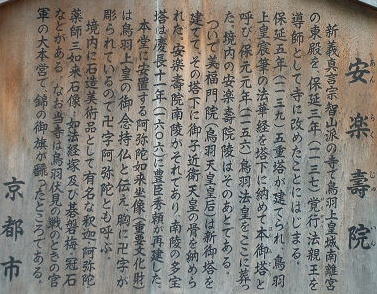 安楽壽院
新義真言宗智山派の寺で鳥羽上皇城南離宮
の東殿を保延三年(一一三七)覚行法親王を
導師として寺に改めたことにはじまる。
保延五年(一一三九)五重塔が建てられ、鳥羽
上皇宸筆の法華経を塔下に納めて本御塔と
呼び保元元年(一一五六)鳥羽法皇をここに葬っ
た。境内の安楽壽院陵はそのあとである。
ついで美福門院(鳥羽天皇皇后)は新御塔を
建てて、その塔下に御子近衛天皇の骨を納めら
れた。安楽壽院南陵がそれであり、南陵の多宝
塔は慶長十一年(一六〇六)に豊臣秀頼が再建した。
本堂に安置する阿弥陀如来坐像(重要文化財)
は鳥羽上皇の御念持仏と伝え胸に卍字が
彫られているので卍字阿弥陀とも呼ぶ。
境内に石造美術品として有名な釈迦・阿弥陀・
薬師三如来石像、如法経塚及び碁盤梅・冠石
などがある。なお当寺は鳥羽伏見の戦のときの官
軍の大本営で、錦の御旗が飜ったところである。
京都市